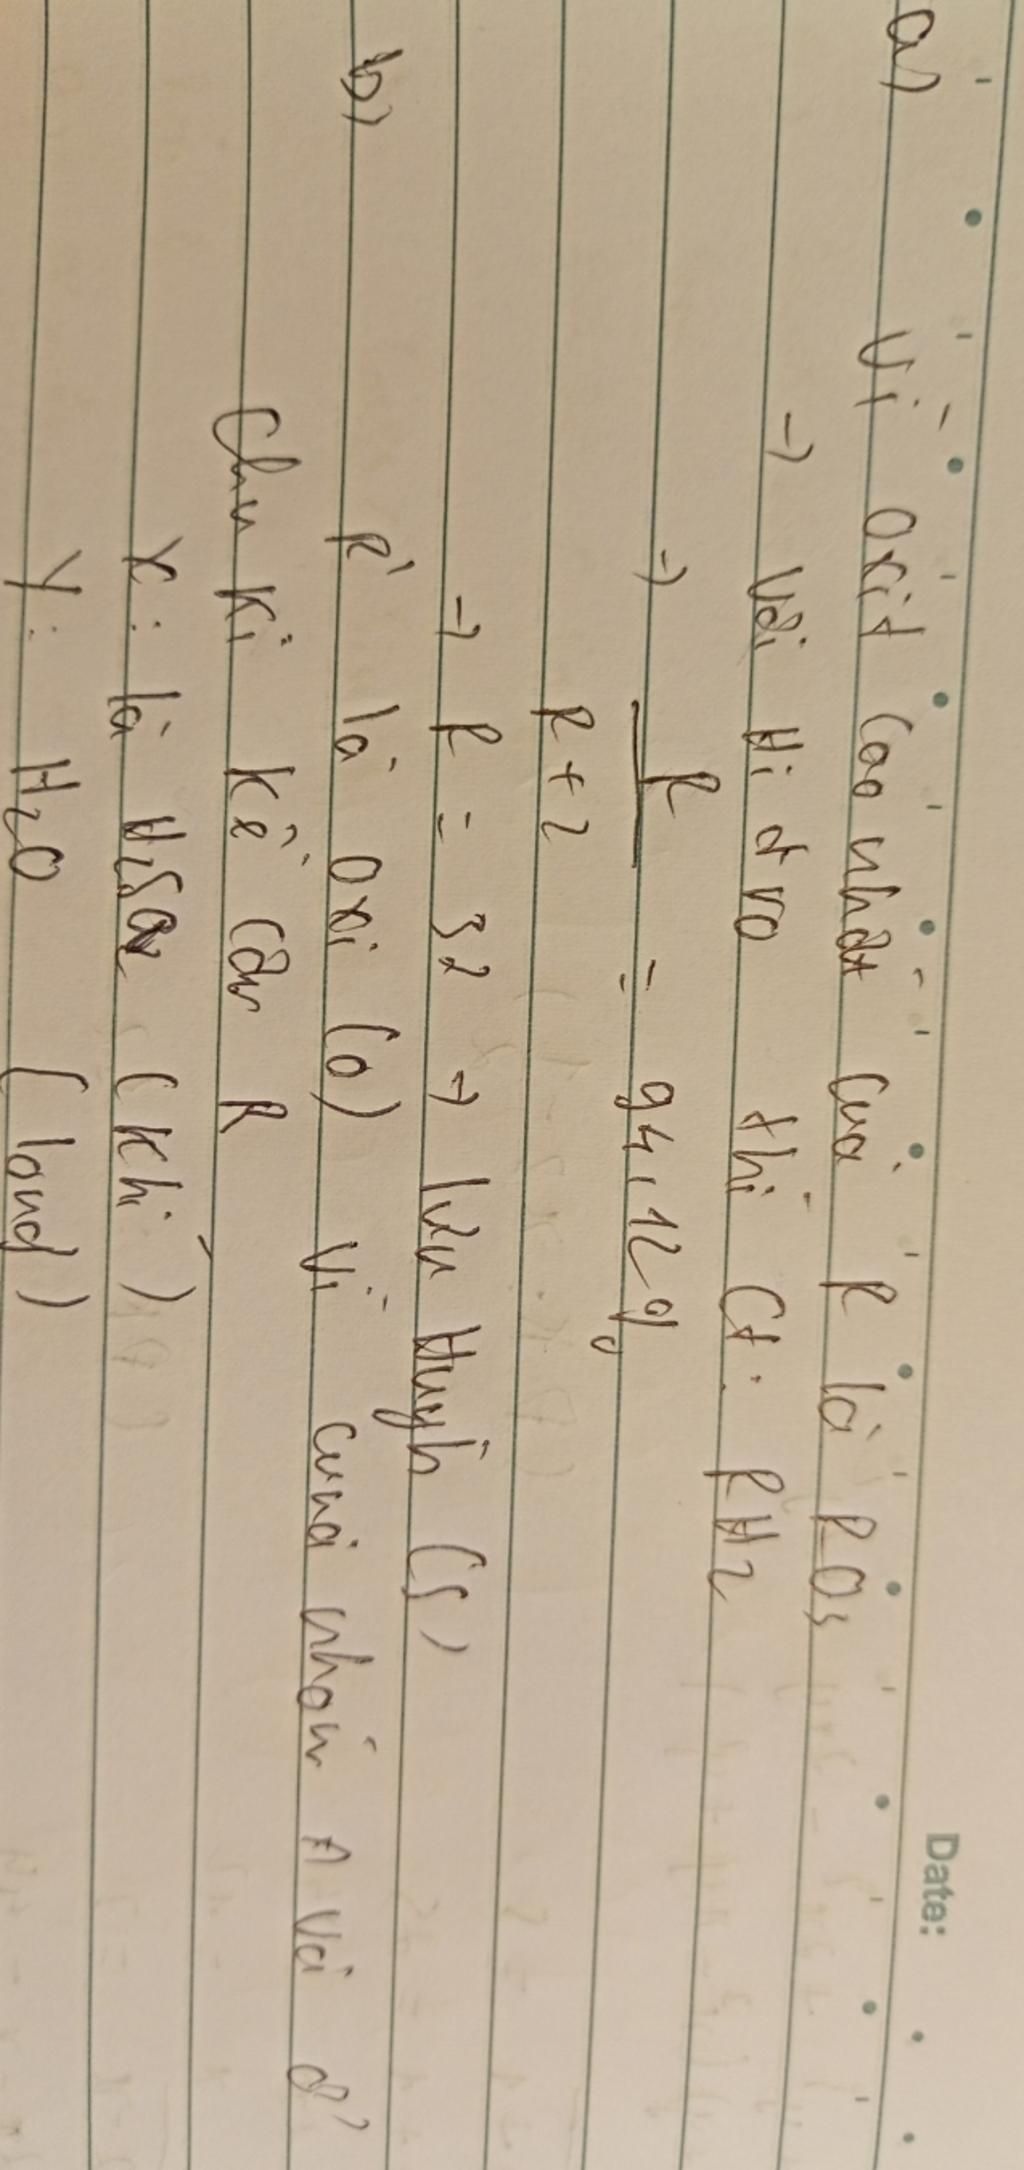 Date:
a) Vì oxit cao nhất của R là RO3
→ Với Hiđro thì Ct: RH2
→ R
= 94,12%
R+2
→ R = 32 → lưu Huỳnh (S)
b) R' là oxi (O) Vì cùng nhóm A và ở
Chu kì kế cận R
X: là (khí)
Y: H2O (lỏng)